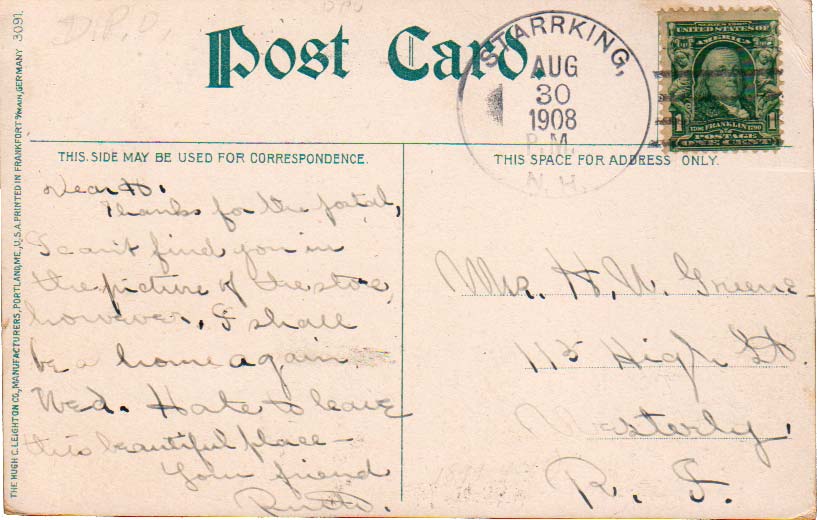 D.P.O.
Post Card.
STARRKING,
AUG
30
1908
P.M.
N.H.
SERIES 1902
UNITED STATES OF
AMERICA
1 1706 FRANKLIN 1790 1
POSTAGE
ONE CENT
THIS SIDE MAY BE USED FOR CORRESPONDENCE.
THIS SPACE FOR ADDRESS ONLY.
Dear H.
Thanks for the postal,
I can't find you in
the picture of the store,
however. I shall
be a home again
Wed. Hate to leave
this beautiful place —
Your friend
Ruth.
Mr. H. W. Greene
115 High St.
Westerly,
R. I.
THE HUGH C. LEIGHTON CO., MANUFACTURERS, PORTLAND, ME., U.S.A. PRINTED IN FRANKFORT o/MAIN, GERMANY 3091.